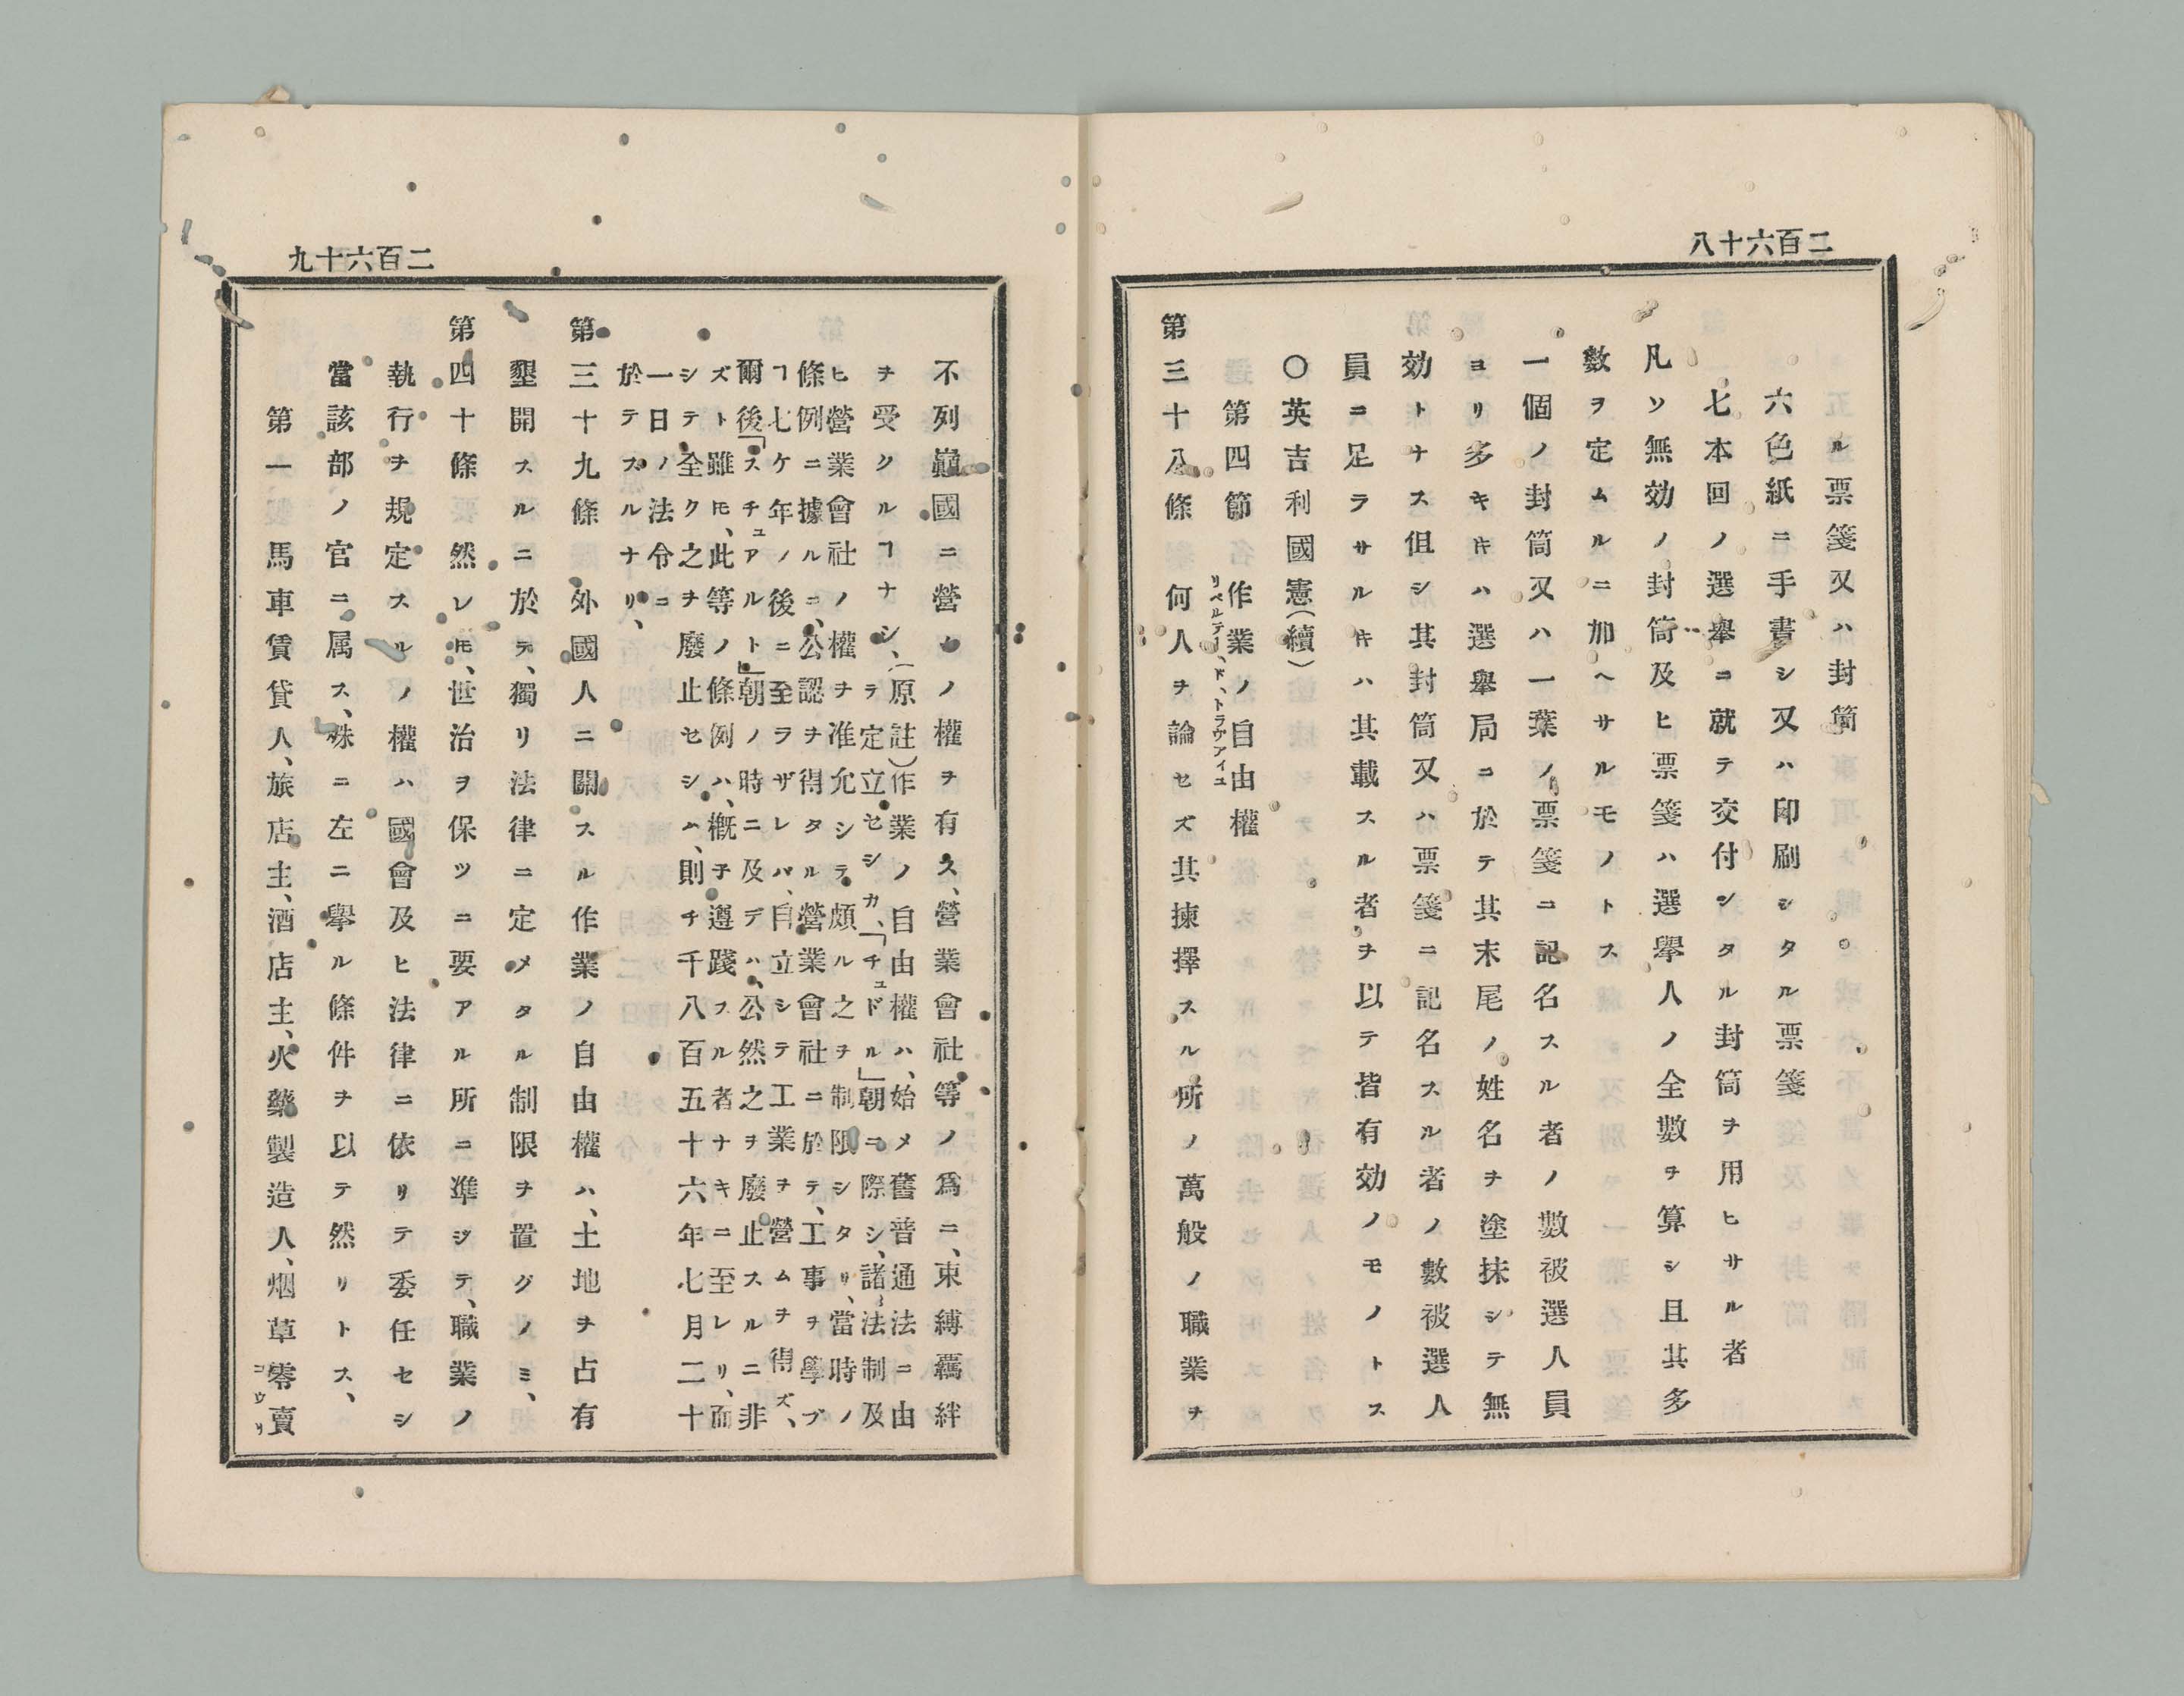 二百六十八
ル票箋又ハ封筒
六色紙ニ手書シ又ハ印刷シタル票箋
七本回ノ選擧ニ就テ交付シタル封筒ヲ用ヒサル者
凡ソ無効ノ封筒及ヒ票箋ハ選擧人ノ全數ヲ算シ且其多
數ヲ定ムルニ加ヘサルモノトス
一個ノ封筒又ハ一葉ノ票箋ニ記名スル者ノ數被選人員
ヨリ多キ𪜈ハ選擧局ニ於テ其末尾ノ姓名ヲ塗抹シテ無
効トナス但シ其封筒又ハ票箋ニ記名スル者ノ數被選人
員ニ足ラサル𪜈ハ其載スル者ヲ以テ皆有効ノモノトス
〇英吉利國憲(續)
第四節 作業ノ自由權
リベルテー、ド、トラヴアイユ
第三十八條 何人ヲ論セズ其揀擇スル所ノ萬般ノ職業ヲ
二百六十九
不列巓國ニ營ムノ權ヲ有ス、營業會社等ノ爲ニ、束縛羈絆
ヲ受クルヿナシ、(原註)作業ノ自由權ハ、始メ舊普通法ニ由
テ定立セシカ、「チュドル」朝ニ際シ、諸法制及
ヒ營業會社ノ權ヲ准允シテ頗ル之ヲ制限シタリ、當時ノ
條例ニ據ルニ、公認ヲ得タル營業會社ニ於テ、工事ヲ學ブ
ヿ七ケ年ノ後ニ至ラザレバ、自立シテ工業ヲ營ムヲ得ズ、
爾後「スチュアルト」朝ノ時ニ及デハ、公然之ヲ廢止スルニ非
ズト雖𪜈、此等ノ條例ハ、概子遵踐スル者ナキニ至レリ、而
シテ全ク之ヲ廢止セシハ、則チ千八百五十六年七月二十
一日ノ法令ニ
於テスルナリ、
第三十九條 外國人ニ關スル作業ノ自由權ハ、土地ヲ占有
墾開スルニ於テ、獨リ法律ニ定メタル制限ヲ置グノミ、
第四十條 然レ𪜈、世治ヲ保ツニ要アル所ニ準ジテ、職業ノ
執行ヲ規定スルノ權ハ國會及ヒ法律ニ依リテ委任セシ
當該部ノ官ニ属ス、殊ニ左ニ擧ル條件ヲ以テ然リトス、
第一、馬車賃貸人、旅店主、酒店主、火藥製造人、烟草零賣
コウリ